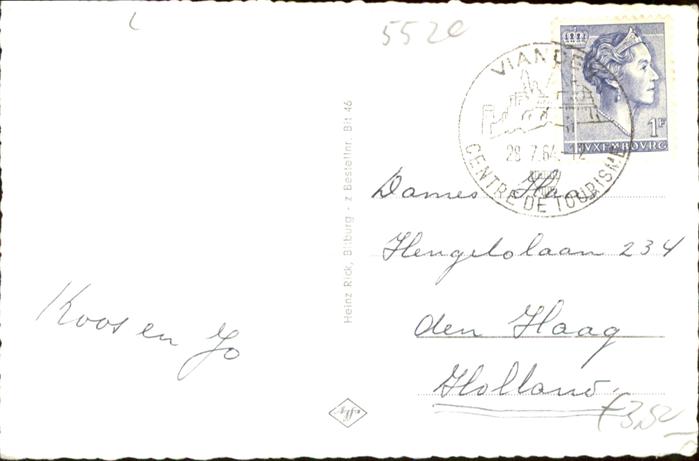 5520
VIANDEN
28.7.64.-12
CENTRE DE TOURISME
1F
LUXEMBOURG
Dames Haas
Hengelolaan 234
den Haag
Holland.
Koos en Jo
Heinz Rick, Bitburg - z Bestellnr. Bit 46
Agfa
f3,50